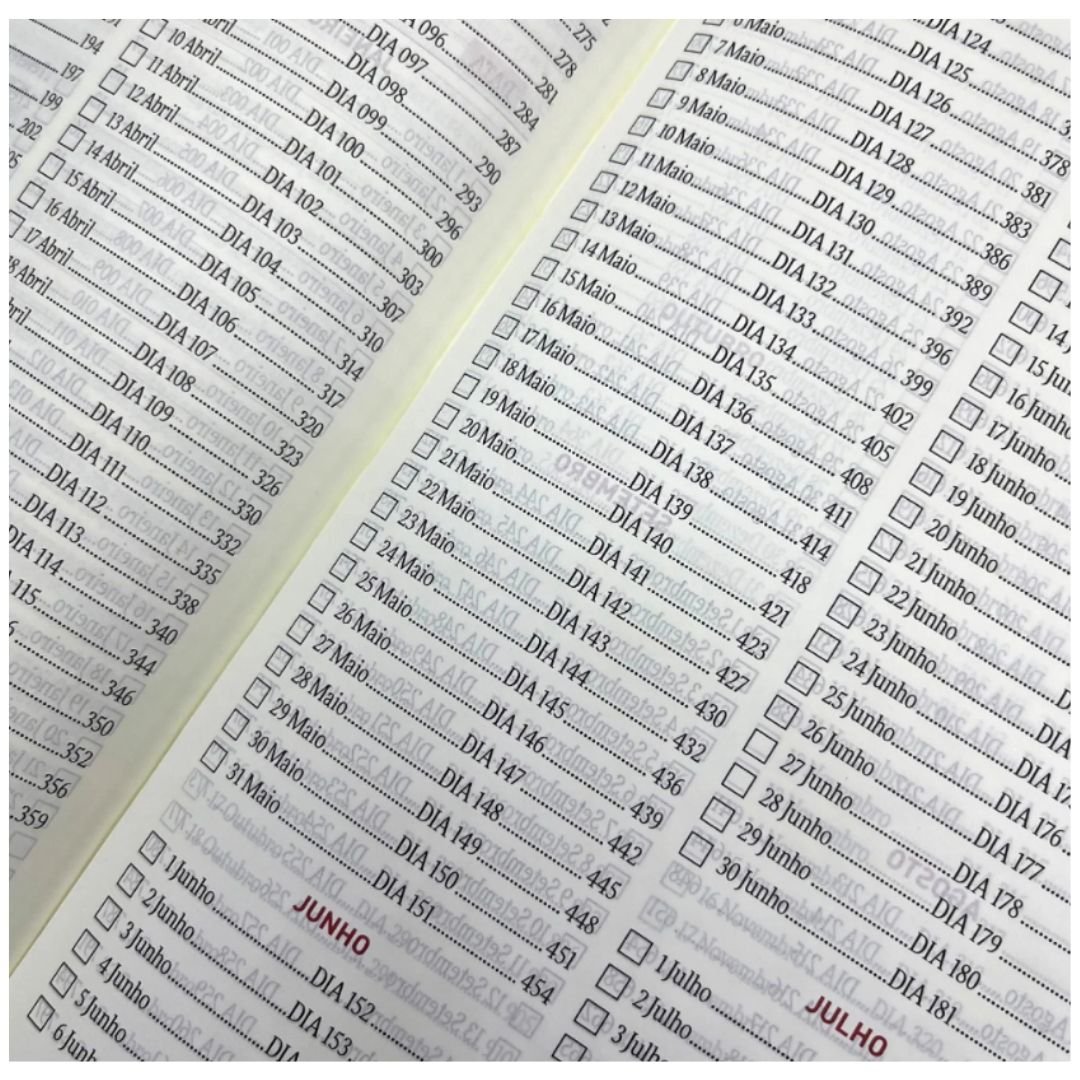 194
197
199
202
05
275
278
281
DIA 096 284
DIA 097 287
DIA 098 290
DIA 099 293
10 Abril DIA 100 296
11 Abril DIA 101 300
12 Abril DIA 102 303
13 Abril DIA 103 307
14 Abril DIA 104 310
15 Abril DIA 105 314
16 Abril DIA 106 317
17 Abril DIA 107 320
8 Abril DIA 108 323
ril DIA 109 326
DIA 110 330
DIA 111 332
DIA 112 335
DIA 113 338
DIA 114 340
115 344
6 346
350
352
356
359
DIA 124
DIA 125
6 Maio DIA 126 378
7 Maio DIA 127 381
8 Maio DIA 128 383
9 Maio DIA 129 386
10 Maio DIA 130 389
11 Maio DIA 131 392
12 Maio DIA 132 396
13 Maio DIA 133 399
14 Maio DIA 134 402
15 Maio DIA 135 405
16 Maio DIA 136 408
17 Maio DIA 137 411
18 Maio DIA 138 414
19 Maio DIA 139 418
20 Maio DIA 140 421
21 Maio DIA 141 423
22 Maio DIA 142 427
23 Maio DIA 143 430
24 Maio DIA 144 432
25 Maio DIA 145 436
26 Maio DIA 146 439
27 Maio DIA 147 442
28 Maio DIA 148 445
29 Maio DIA 149 448
30 Maio DIA 150 451
31 Maio DIA 151 454
JUNHO
1 Junho DIA 152
2 Junho DIA 153
3 Junho DIA
4 Junho
5 Junho
6 Junh
14 J
15 Jun
16 Junho
17 Junho
18 Junho
19 Junho
20 Junho
21 Junho
22 Junho D
23 Junho DIA
24 Junho DIA 17
25 Junho DIA 176
26 Junho DIA 177
27 Junho DIA 178
28 Junho DIA 179
29 Junho DIA 180
30 Junho DIA 181
JULHO
1 Julho
2 Julho
3 Julh